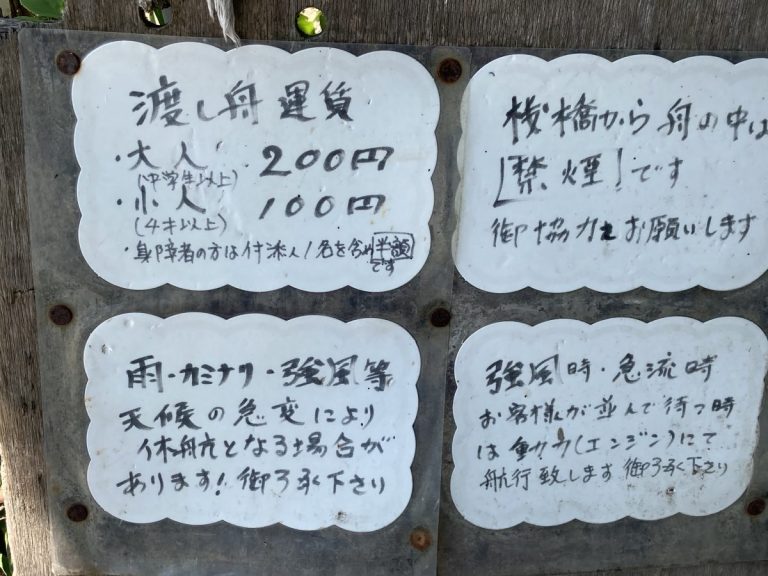 渡し舟 運賃
・大人 200円
(中学生以上)
・小人 100円
(4才以上)
・身障者の方は付添人1名を含め半額
です
桟橋から舟の中は
「禁煙」です
御協力をお願いします
雨・カミナリ・強風等
天候の急変により
休航となる場合が
あります!御了承下さい
強風時・急流時
お客様が並んで待つ時
は動力(エンジン)にて
航行致します 御了承下さい